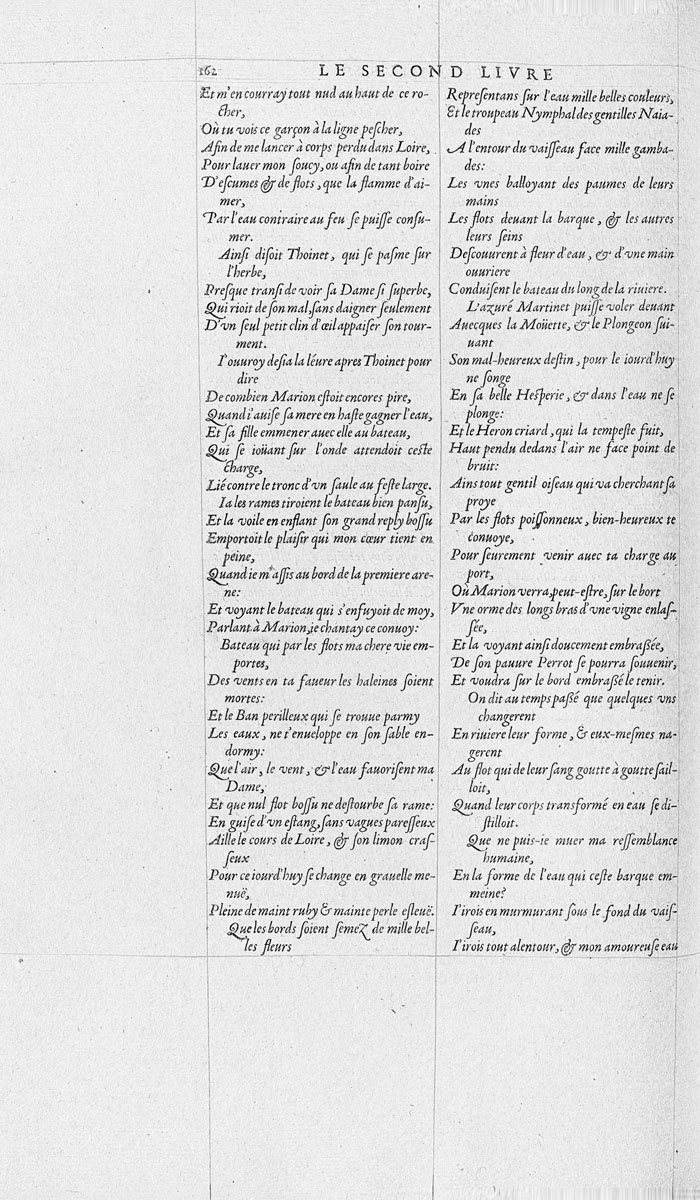 162
LE SECOND LIVRE
Et m'en courray tout nud au haut de ce ro-
cher,
Où tu vois ce garçon à la ligne pescher,
Afin de me lancer à corps perdu dans Loire,
Pour lauer mon soucy, ou afin de tant boire
D'escumes & de flots, que la flamme d'ai-
mer,
Par l'eau contraire au feu se puisse consu-
mer.
Ainsi disoit Thoinet, qui se pasme sur
l'herbe,
Presque transi de voir sa Dame si superbe,
Qui rioit de son mal, sans daigner seulement
D'vn seul petit clin d'œil appaiser son tour-
ment.
I'ouuroy desia la léure apres Thoinet pour
dire
De combien Marion estoit encores pire,
Quand i'auise sa mere en haste gagner l'eau,
Et sa fille emmener auec elle au bateau,
Qui se ioüant sur l'onde attendoit ceste
charge,
Lié contre le tronc d'vn saule au feste large.
Ia les rames tiroient le bateau bien pansu,
Et la voile en enflant son grand reply bossu
Emportoit le plaisir qui mon cœur tient en
peine,
Quand ie m'assis au bord de la premiere are-
ne:
Et voyant le bateau qui s'enfuyoit de moy,
Parlant à Marion, ie chantay ce conuoy:
Bateau qui par les flots ma chere vie em-
portes,
Des vents en ta faueur les haleines soient
mortes:
Et le Ban perilleux qui se trouue parmy
Les eaux, ne t'enueloppe en son sable en-
dormy:
Que l'air, le vent, & l'eau fauorisent ma
Dame,
Et que nul flot bossu ne destourbe sa rame:
En guise d'vn estang, sans vagues paresseux
Aille le cours de Loire, & son limon cras-
seux
Pour ce iourd'huy se change en grauelle me-
nuë,
Pleine de maint ruby & mainte perle esleuë.
Que les bords soient semeZ de mille bel-
les fleurs
Representans sur l'eau mille belles couleurs,
Et le troupeau Nymphal des gentilles Naia-
des
A l'entour du vaisseau face mille gamba-
des:
Les vnes balloyant des paumes de leurs
mains
Les flots deuant la barque, & les autres
leurs seins
Descouurent à fleur d'eau, & d'vne main
ouuriere
Conduisent le bateau du long de la riuiere.
L'azuré Martinet puisse voler deuant
Auecques la Moüette, & le Plongeon sui-
uant
Son mal-heureux destin, pour le iourd'huy
ne songe
En sa belle Hesperie, & dans l'eau ne se
plonge:
Et le Heron criard, qui la tempeste fuit,
Haut pendu dedans l'air ne face point de
bruit:
Ains tout gentil oiseau qui va cherchant sa
proye
Par les flots poissonneux, bien-heureux te
conuoye,
Pour seurement venir auec ta charge au
port,
Où Marion verra, peut-estre, sur le bort
Vne orme des longs bras d'vne vigne enlas-
sée,
Et la voyant ainsi doucement embraßée,
De son pauure Perrot se pourra souuenir,
Et voudra sur le bord embraßé le tenir.
On dit au temps paßé que quelques vns
changerent
En riuiere leur forme, & eux-mesmes na-
gerent
Au flot qui de leur sang goutte à goutte sail-
loit,
Quand leur corps transformé en eau se di-
stilloit.
Que ne puis-ie muer ma ressemblance
humaine,
En la forme de l'eau qui ceste barque em-
meine?
I'irois en murmurant sous le fond du vais-
seau,
I'irois tout alentour, & mon amoureuse eau